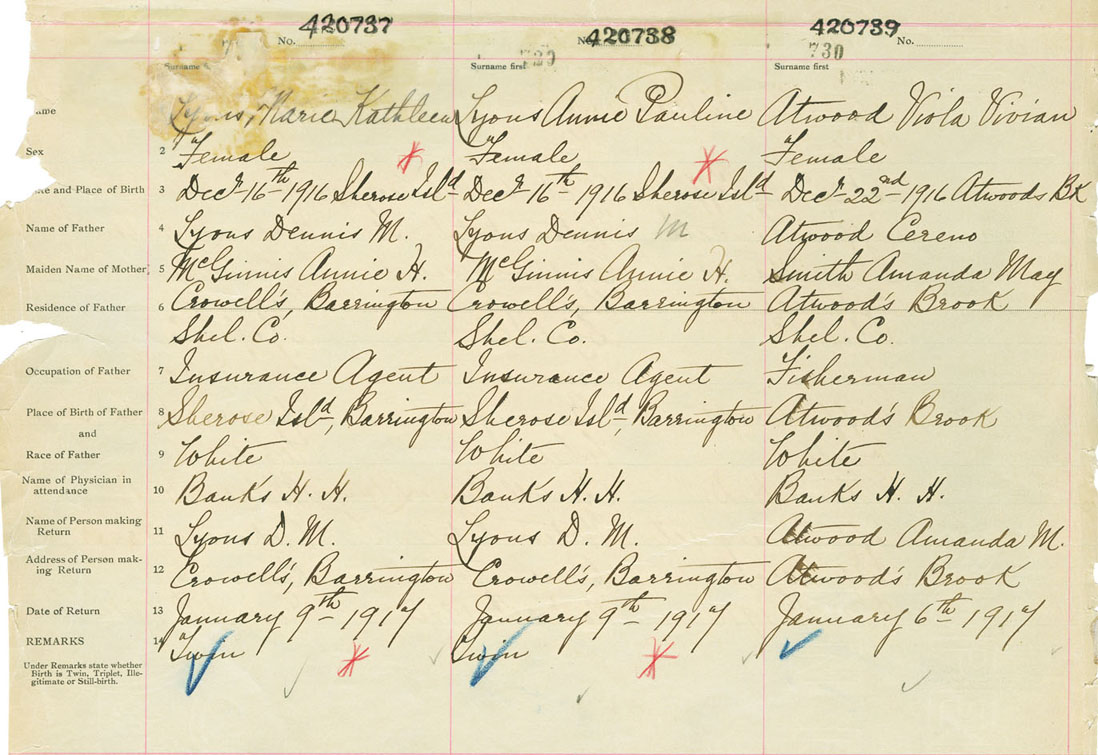 420737 420738 420739
No. No. No.
729 730
Surname Surname first Surname first
Lyons, Marie Kathleen Lyons Annie Pauline Atwood Viola Vivian
Sex 2 Female Female Female
and Place of Birth 3 Decr 16th 1916 Sherose Isld Decr 16th 1916 Sherose Isld Decr 22nd 1916 Atwoods Bk
Name of Father 4 Lyons Dennis M. Lyons Dennis M Atwood Cereno
Maiden Name of Mother 5 McGinnis Annie H. McGinnis Annie H. Smith Amanda May
Residence of Father 6 Crowell's, Barrington Crowell's, Barrington Atwood's Brook
Shel. Co. Shel. Co. Shel. Co.
Occupation of Father 7 Insurance Agent Insurance Agent Fisherman
Place of Birth of Father 8 Sherose Isld, Barrington Sherose Isld, Barrington Atwood's Brook
and
Race of Father 9 White White White
Name of Physician in
attendance 10 Banks H. H. Banks H. H. Banks H. H.
Name of Person making
Return 11 Lyons D. M. Lyons D. M. Atwood Amanda M.
Address of Person mak-
ing Return 12 Crowell's, Barrington Crowell's, Barrington Atwood's Brook
Date of Return 13 January 9th 1917 January 9th 1917 January 6th 1917
REMARKS 14 Twin Twin
Under Remarks state whether
Birth is Twin, Triplet, Ille-
gitimate or Still-birth.